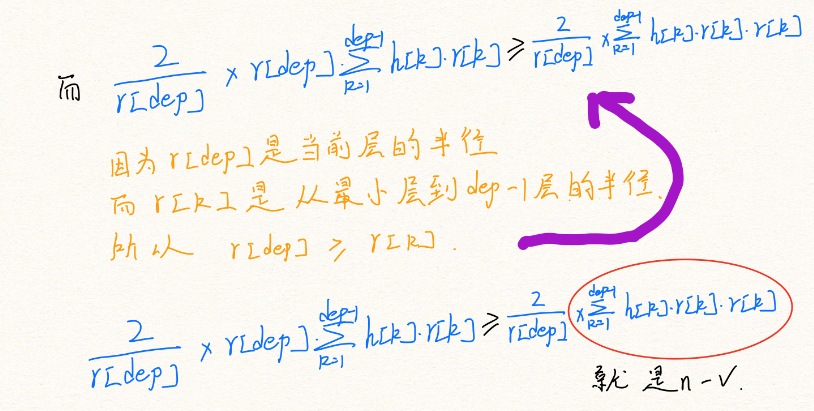 而 2/r[dep] × r[dep]·∑_{k=1}^{dep-1} h[k]·r[k] ≥ 2/r[dep] × ∑_{k=1}^{dep-1} h[k]·r[k]·r[k]
因为 r[dep] 是当前层的半径
而 r[k] 是从最小层到 dep-1层的半径.
所以 r[dep] ≥ r[k].
2/r[dep] × r[dep]·∑_{k=1}^{dep-1} h[k]·r[k] ≥ 2/r[dep] × ∑_{k=1}^{dep-1} h[k]·r[k]·r[k]
就是n-v.